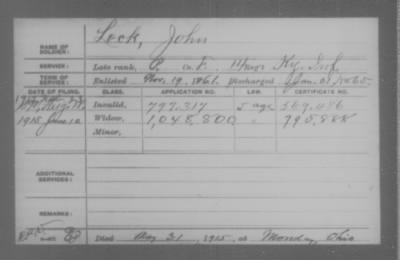 NAME OF SOLDIER: Lock, John
SERVICE: Late rank, P. Co. F, 11 Reg't Ky. Inf.
TERM OF SERVICE: Enlisted Nov. 19, 1861. Discharged Jan. 21, 1865.
DATE OF FILING. CLASS. APPLICATION NO. LAW. CERTIFICATE NO.
Invalid, 797,317 569,486
1915 June 12 Widow, 1,048,800 " 795,888
Minor,
ADDITIONAL SERVICES:
REMARKS:
Died Aug 31, 1915, at Monday, Ohio